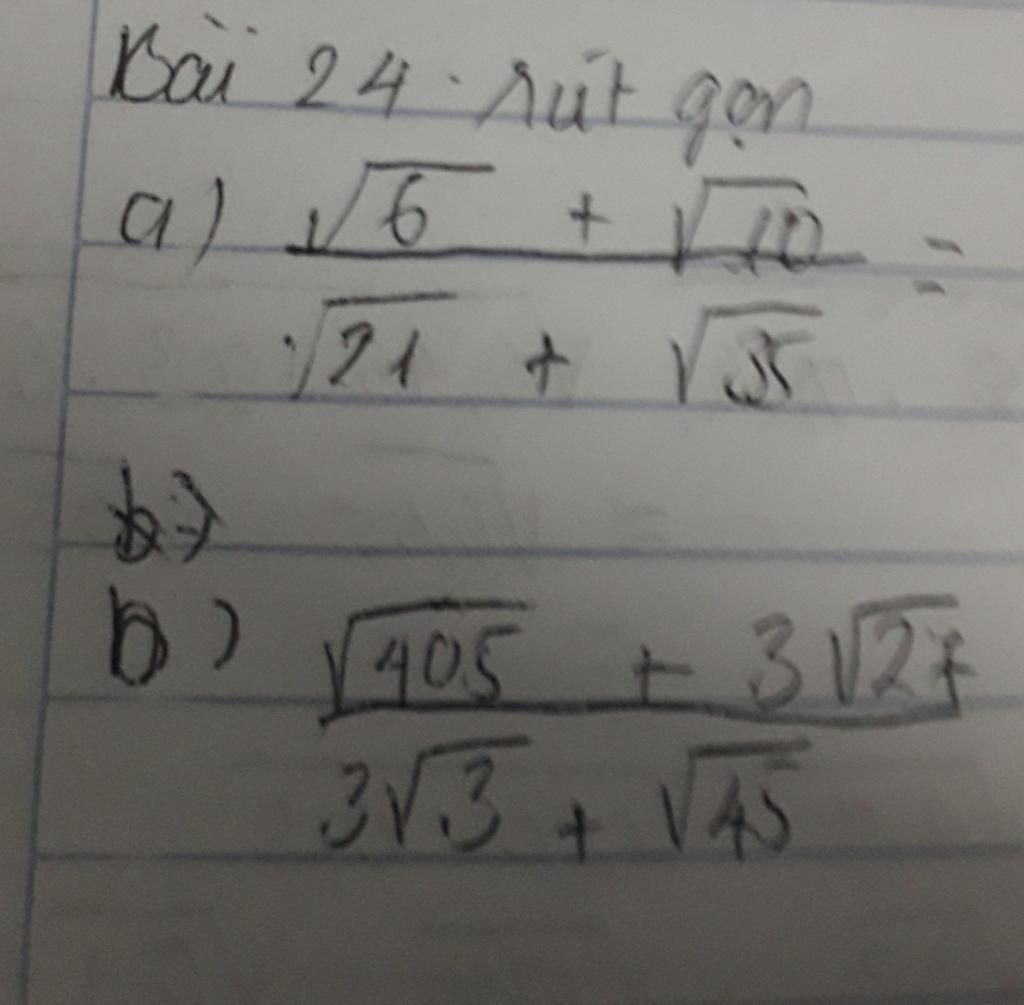 Bài 24. rút gọn
a) (√6 + √10) / (√21 + √35) =
b)
b) (√405 + 3√27) / (3√3 + √45)